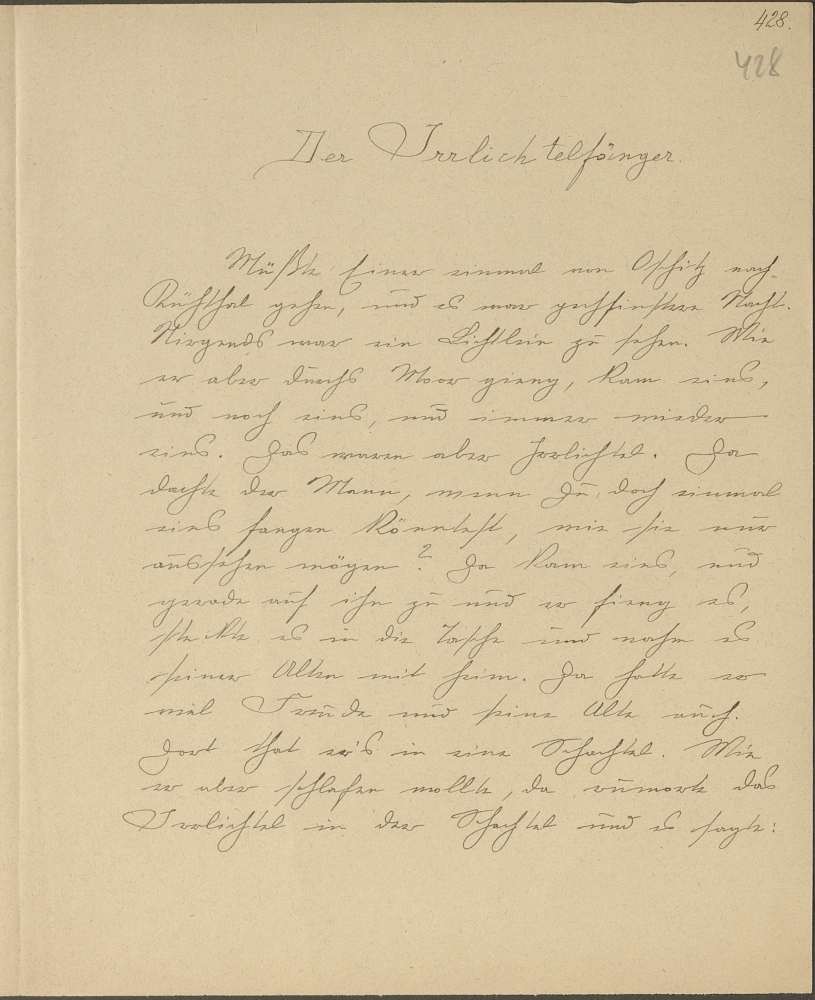 428.
428
Der Irrlichtelfänger.
Müßte Einer einmal von Oschitz nach
Kühthal gehen, und es war pechfinstere Nacht.
Nirgends war ein Lichtlein zu sehen. Wie
er aber durchs Moor gieng, kam eins,
und noch eins, und immer wieder
eins. Das waren aber Irrlichtel. Da
dachte der Mann, wenn Du doch einmal
eins fangen könntest, wie sie nur
aussehen mögen? Da kam eins, und
gerade auf ihn zu und er fieng es,
steckte es in die Tasche und nahm es
seiner Alten mit heim. Da hatte er
viel Freude und seine Alte auch.
Dort that er's in eine Schachtel. Wie
er aber schlafen wollte, da rumorte das
Irrlichtel in der Schachtel und es sagte: